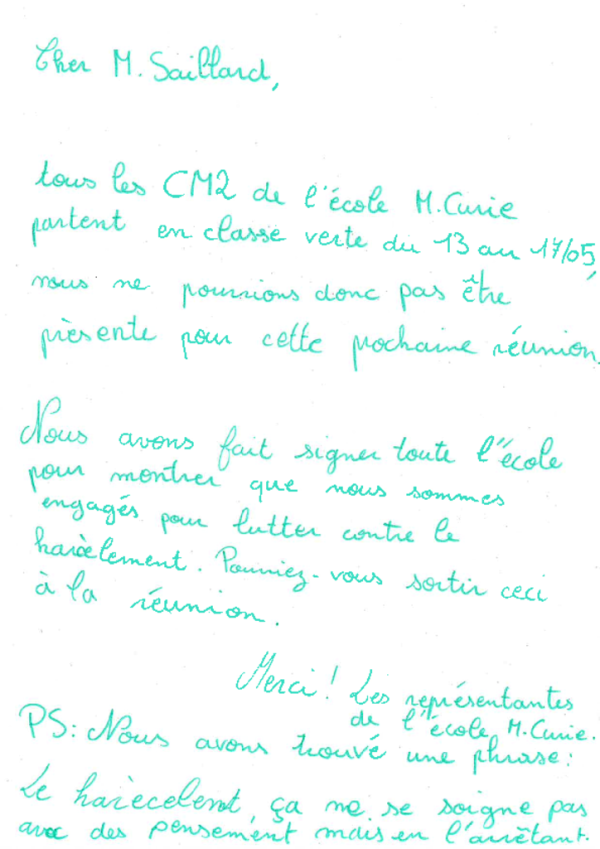 Cher M. Saillard,
tous les CM2 de l'école M. Curie
partent en classe verte du 13 au 17/05,
nous ne pourrions donc pas être
présente pour cette prochaine réunion.
Nous avons fait signer toute l'école
pour montrer que nous sommes
engagés pour lutter contre le
harcèlement. Pourriez-vous sortir ceci
à la réunion.
Merci! Les représentantes
de l'école M. Curie.
PS: Nous avons trouvé une phrase:
Le harècelent, ça ne se soigne pas
avec des pensement mais en l'arrêtant.